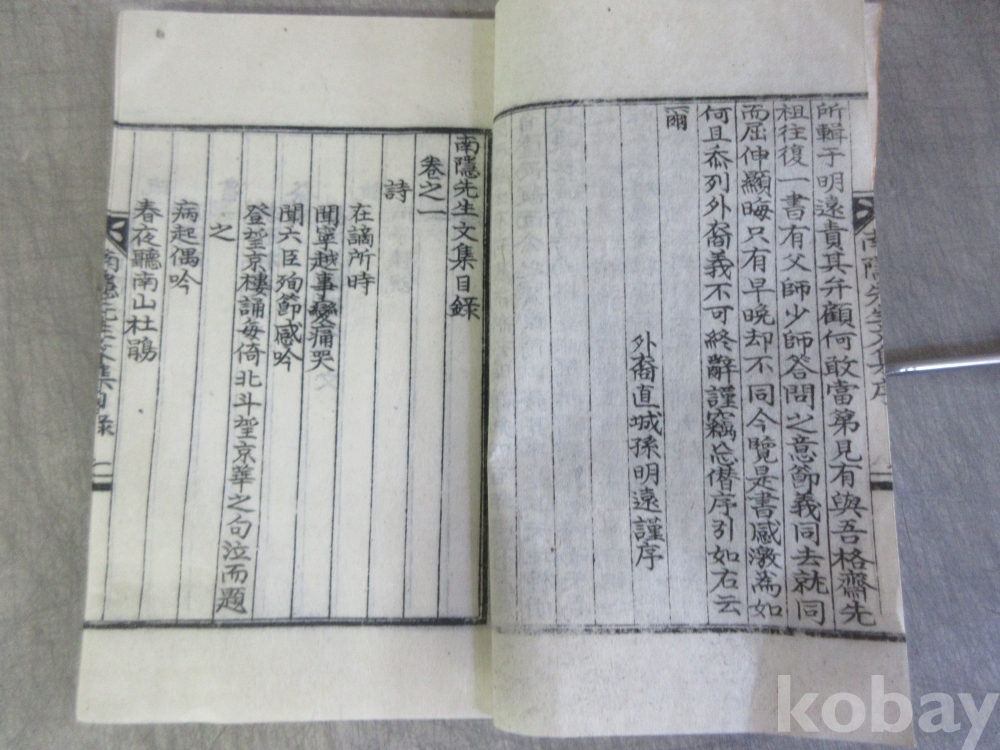 所輯于明遠責其弁顧何敢當第見有與吾格齋先
祖往復一書有父師少師答問之意節義同去就同
而屈伸顯晦只有早晩却不同今覽是書感激為如
何且忝列外裔義不可終辭謹竊忘僭序引如右云
爾
外裔直城孫明遠謹序
南隱先生文集序
南隱先生文集目錄
卷之一
詩
在謫所時
聞寧越事變痛哭
聞六臣殉節感吟
登望京樓誦每倚北斗望京華之句泣而題
之
病起偶吟
春夜聽南山杜鵑
南隱先生文集目錄
一
kobay